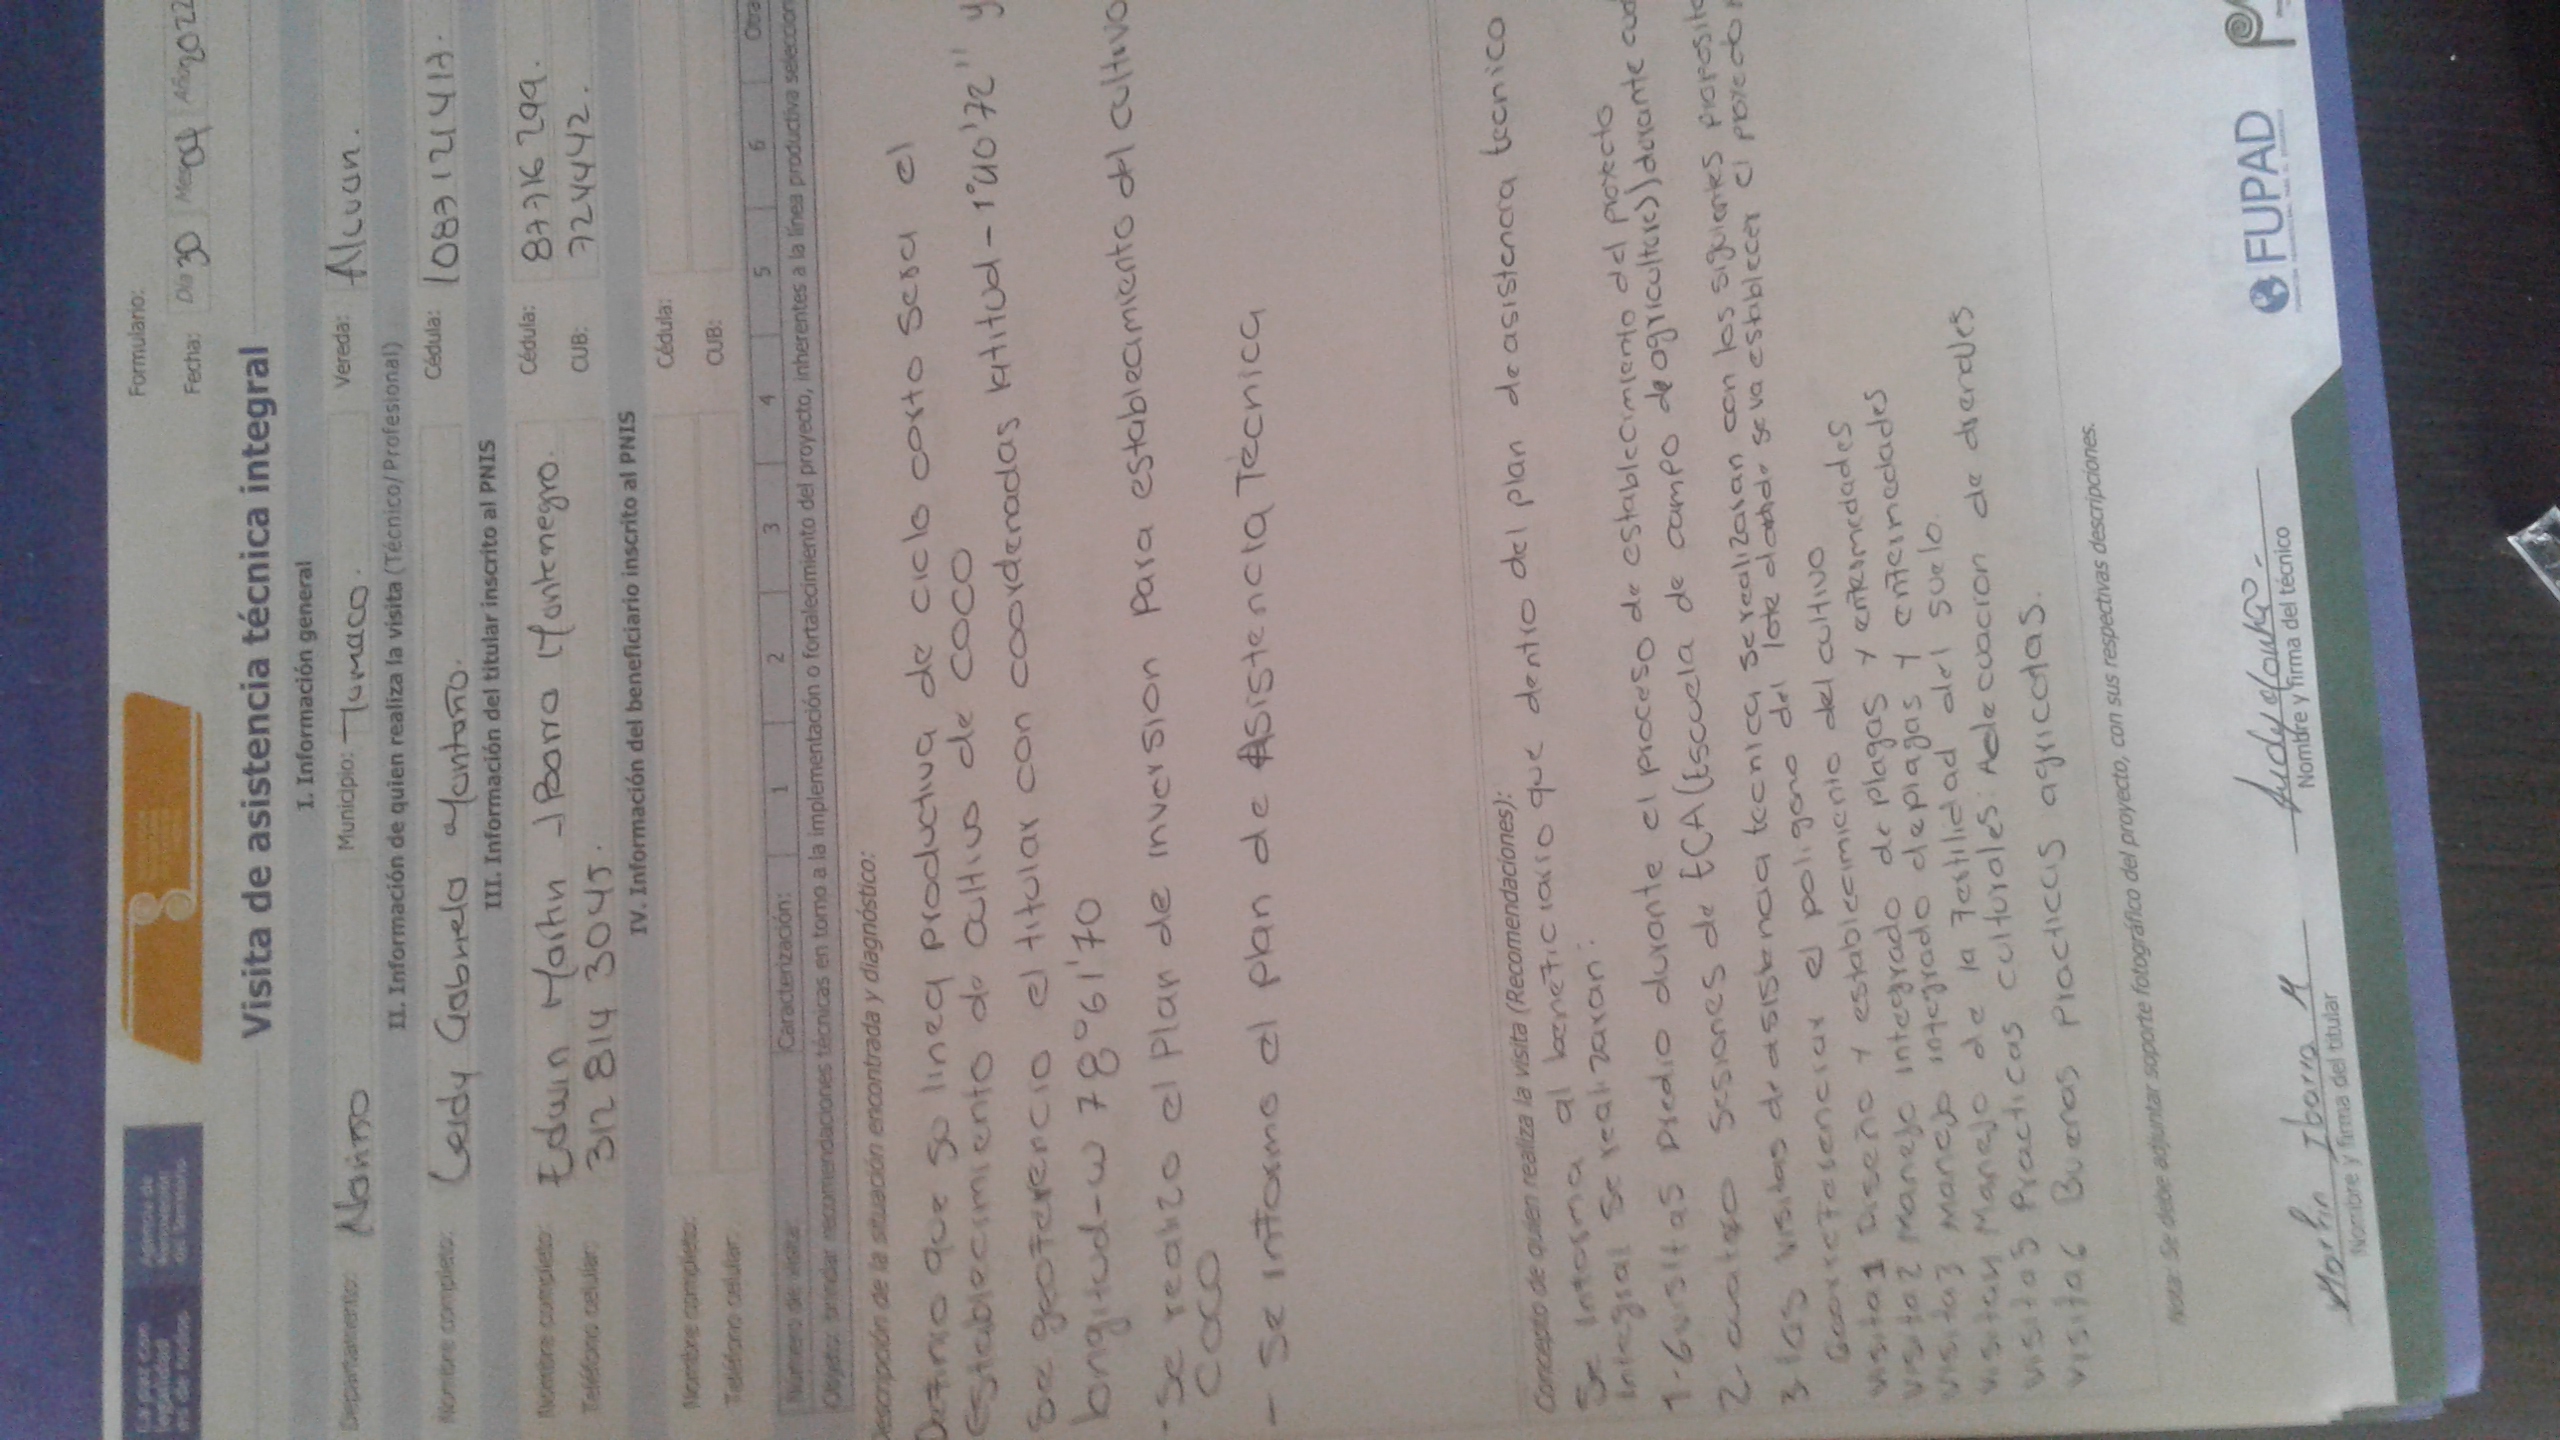 Formulario:
Fecha: Día 30 Mes 04 Año 2022
Visita de asistencia técnica integral
I. Información general
Departamento: Nariño Municipio: Tumaco. Vereda: Alcuan.
II. Información de quien realiza la visita (Técnico/Profesional)
Nombre completo: Leidy Gabriela Montaño. Cédula: 1087121417.
III. Información del titular inscrito al PNIS
Nombre completo: Edwin Martin Ibarra Montenegro. Cédula: 87716299.
Teléfono celular: 312 814 3045. CUB: 724442.
IV. Información del beneficiario inscrito al PNIS
Nombre completo: Cédula:
Teléfono celular: CUB:
Número de visita: Caracterización: 1 2 3 4 5 6 Otra
Objeto: brindar recomendaciones técnicas en torno a la implementación o fortalecimiento del proyecto, inherentes a la línea productiva seleccion
Descripción de la situación encontrada y diagnóstico:
Definio que so linea productiva de ciclo corto sera el
Establecimiento de cultivo de coco
se georeferencio el titular con coordenadas latitud - 1°40'72" y
longitud - w 78°61'70
- Se realizo el Plan de inversion para establecimiento del cultivo
coco
- Se informo el plan de Asistencia Tecnica
Concepto de quien realiza la visita (Recomendaciones):
Se informa al beneficiario que dentro del plan de asistencia tecnico
integral se realizaran:
1- 6 visitas predio durante el proceso de establecimiento del proyecto
2- cuatro sesiones de ECA (Escuela de campo de agricultores) durante
3- las visitas de asistencia tecnica se realizaran con los siguientes proposito
Georreferenciar el poligono del lote donde se va establecer el
visita 1 Diseño y establecimiento del cultivo
visita 2 Manejo integrado de plagas y enfermedades
visita 3 Manejo integrado de plagas y enfermedades
visita 4 Manejo de la fertilidad del suelo.
visita 5 Practicas culturales: Adecuacion de drenajes
visita 6 Buenas practicas agricolas.
Nota: Se debe adjuntar soporte fotográfico del proyecto, con sus respectivas descripciones.
Martin Ibarra M
Nombre y firma del titular
Nombre y firma del técnico
FUPAD